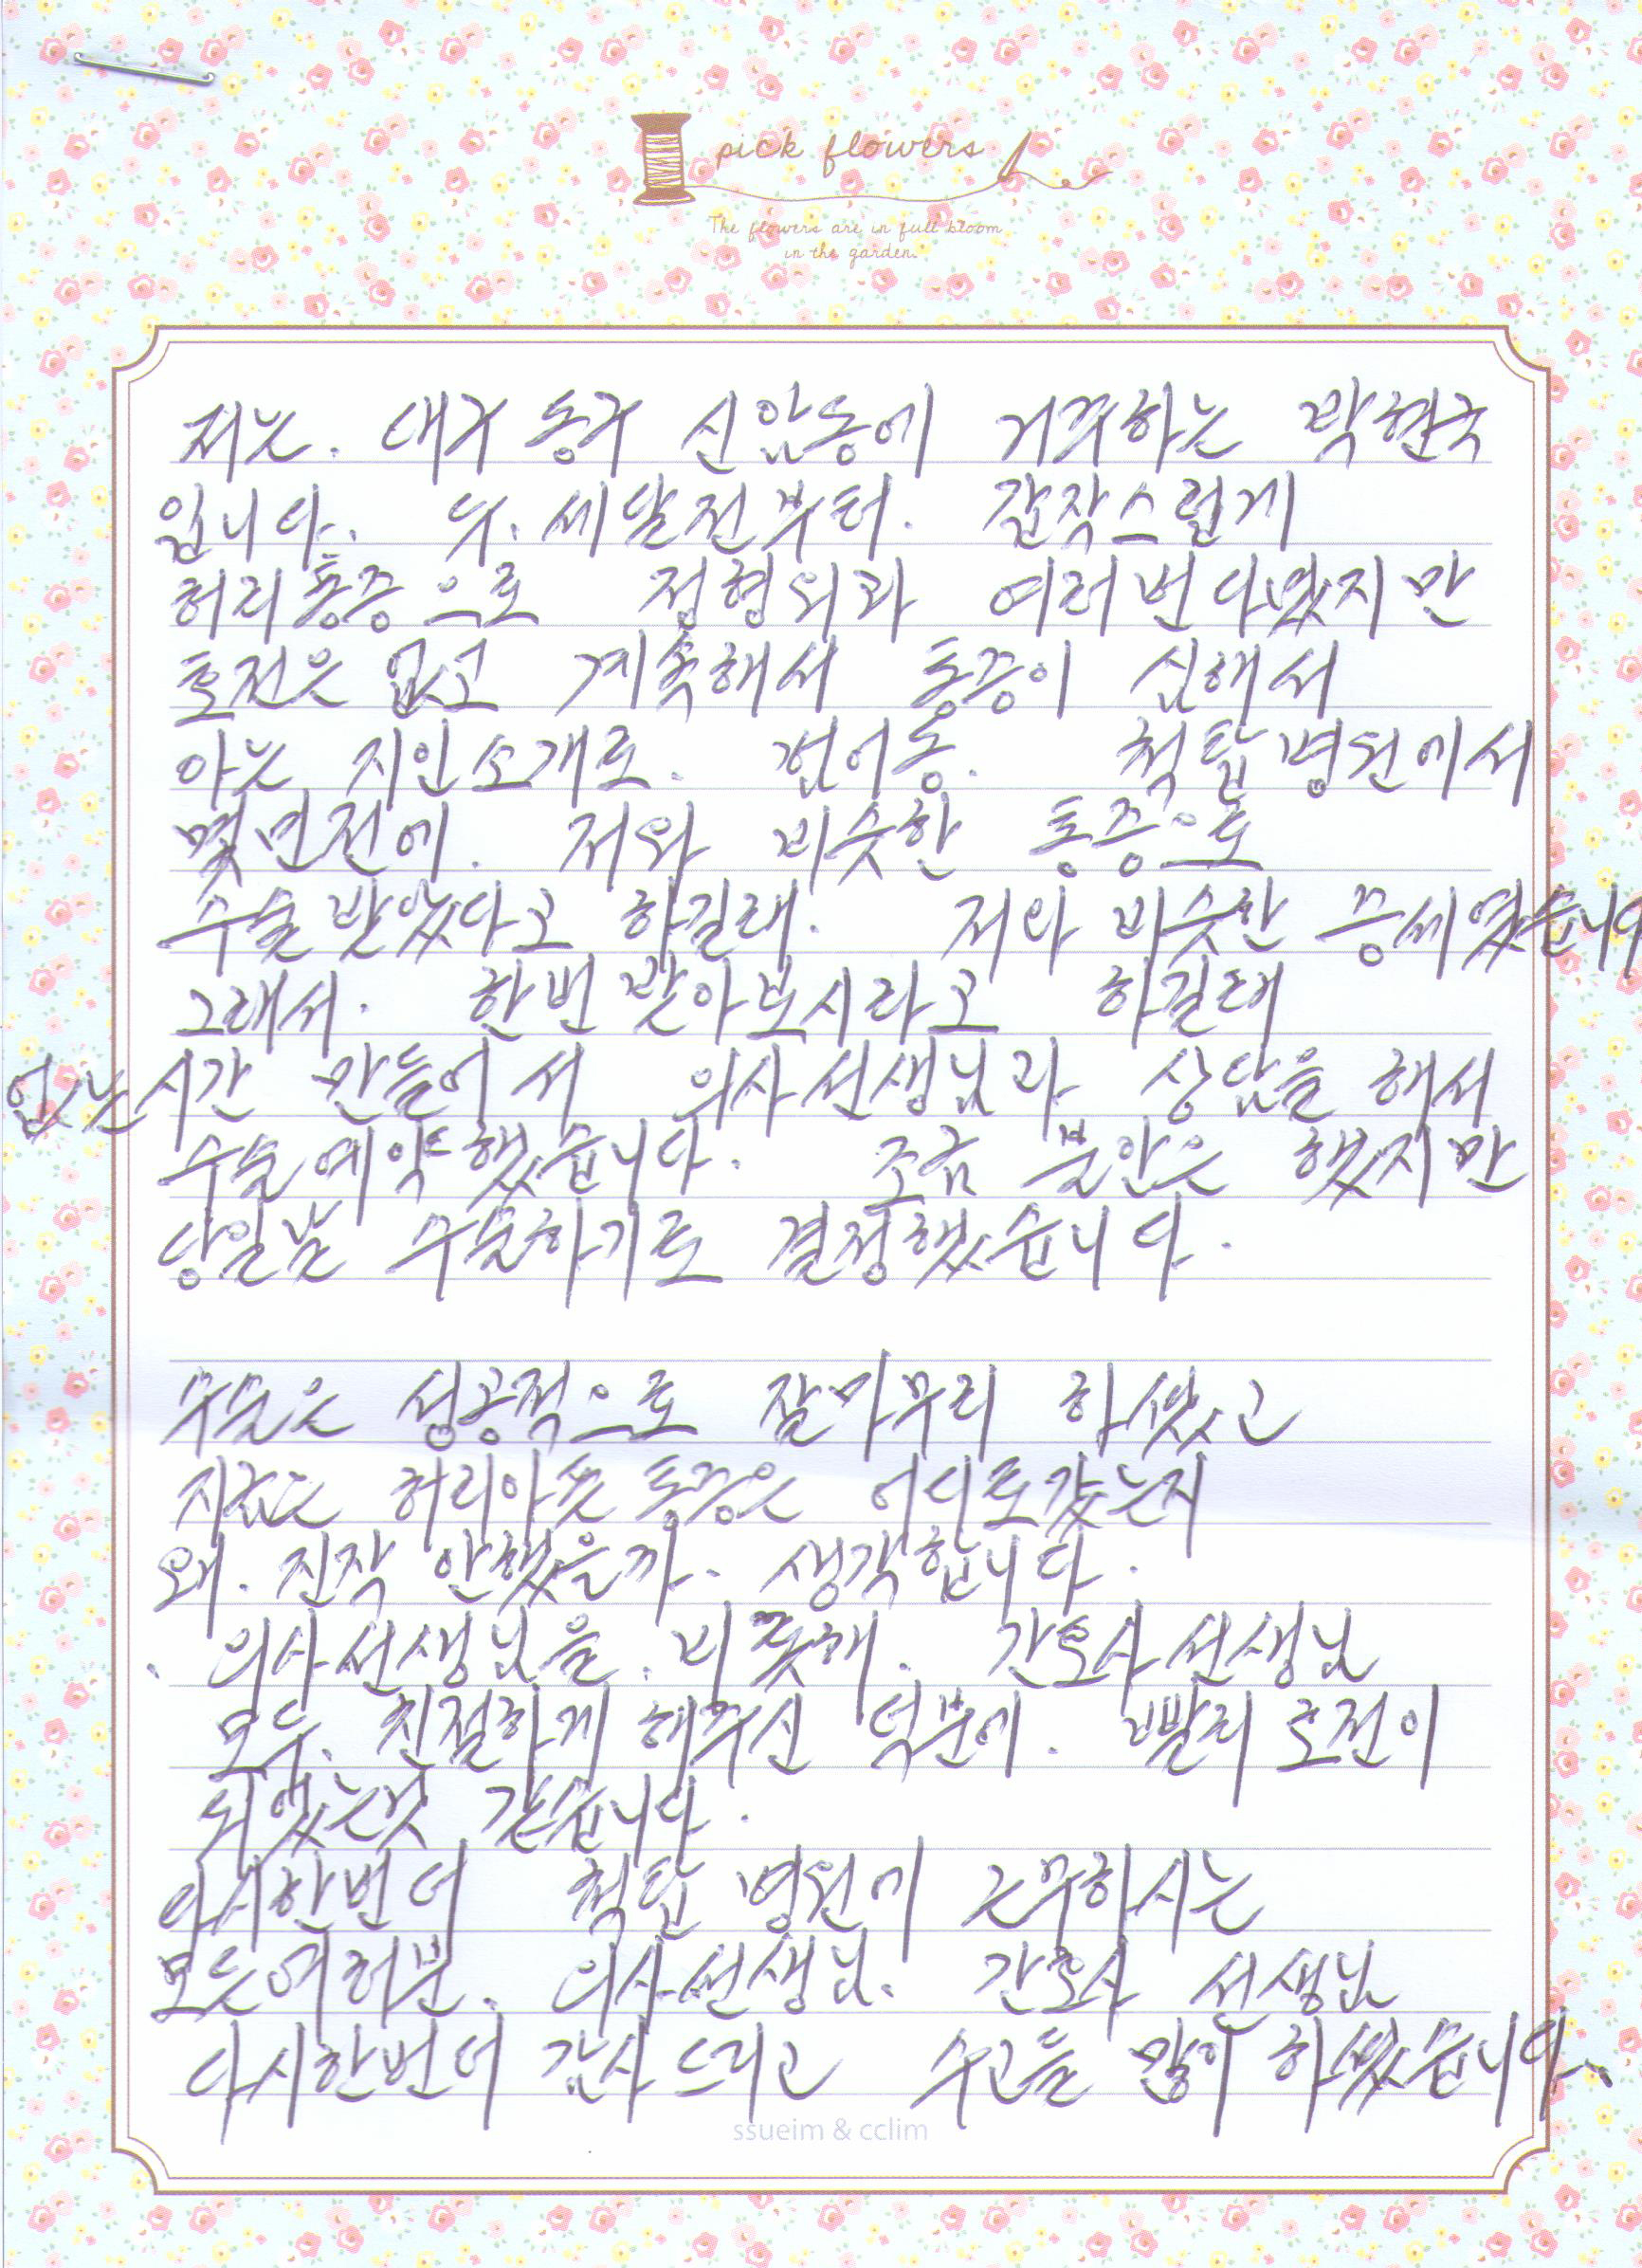 pick flowers
The flowers are in full bloom
in the garden.
저는. 대구 동구 신암동에 거주하는 박현국
입니다. 두. 세달전부터. 갑작스럽게
허리통증으로 정형외과 여러번다녔지만
호전은 없고 계속해서 통증이 심해서
아는 지인소개로. 범어동. 척탑병원에서
몇년전에. 저와 비슷한 통증으로
수술받았다고 하길래. 저와 비슷한 증세였습니다
그래서. 한번 받아보시라고 하길래
없는시간 만들어서 의사선생님과 상담을 해서
수술예약했습니다. 조금 불안은 했지만
당일날 수술하기로 결정했습니다.
수술은 성공적으로 잘마무리 하셨고
지금은 허리아픈통증은 어디로갔는지
왜. 진작 안했을까. 생각합니다.
. 의사선생님을. 비롯해. 간호사선생님
모두. 친절하게 해주신 덕분에. 빨리 호전이
되었는것 같습니다.
다시한번더 척탑 병원에 근무하시는
모든여러분. 의사선생님. 간호사 선생님
다시한번더 감사드리고 수고들 많이 하셨습니다.
ssueim & cclim